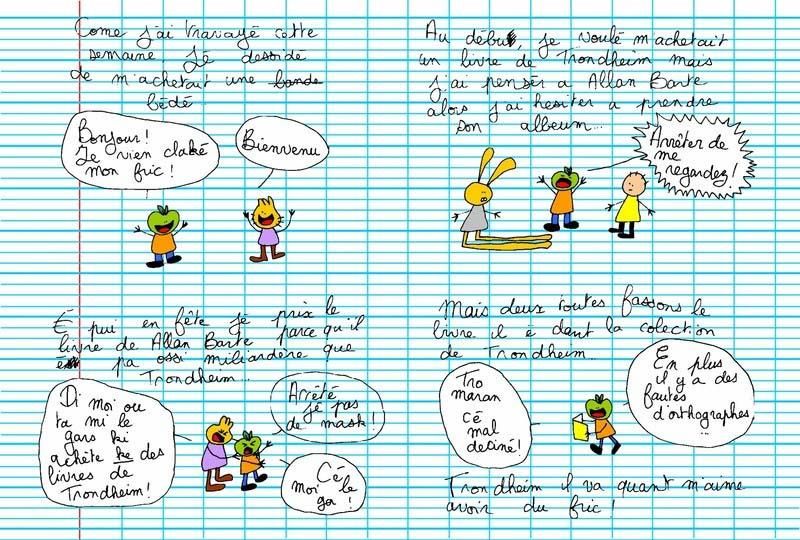 Come j'ai travayé cette
semaine. Jé desside
de m'achetait une bande
bédé.
Bonjour!
Je vien claké
mon fric!
Bienvenu
Au début, je voulé m'achetait
un livre de Trondheim mais
j'ai pensér a Allan Barte
alors j'ai hesiter a prendre
son albeum...
Arrêter de
me
regardez!
É pui en fête jé prix le
livre de Allan Barte parce qu'il
é pa ossi miliardère que
Trondheim...
Di moi ou
ta mi le
gars ki
achète ke des
livres de
Trondheim!
Arrêté
jé pas
de mask!
Cé
moi le
ga!
Mais deux toutes fassons le
livre il è dant la colection
de Trondheim...
Tro
maran
cé
mal
deciné!
En plus
il y a des
fautes
d'orthographes
...
Trondheim il va quant m'aime
avoir du fric!